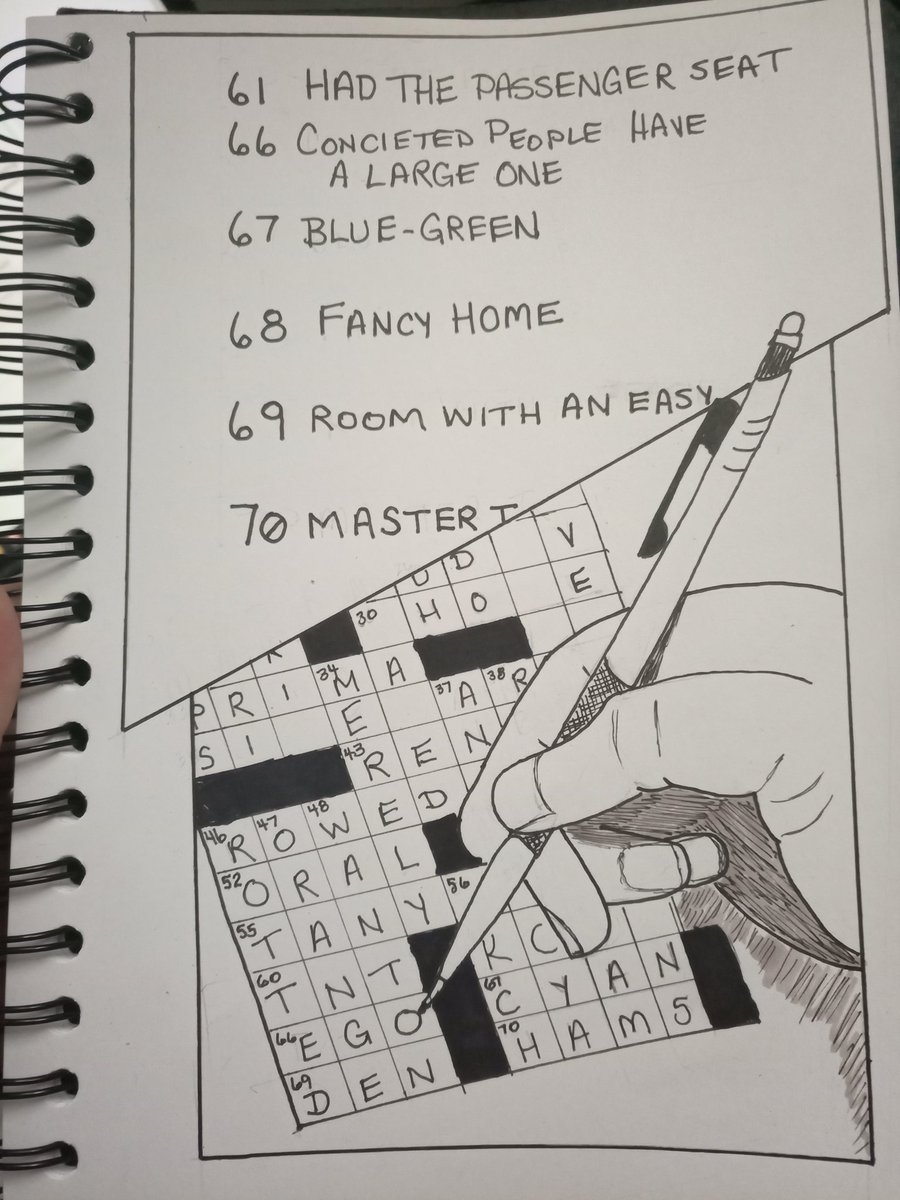 61 HAD THE PASSENGER SEAT
66 CONCIETED PEOPLE HAVE
A LARGE ONE
67 BLUE-GREEN
68 FANCY HOME
69 ROOM WITH AN EASY
70 MASTER
U D V
30 H O E
P R I 34 M A
S I E 37 A 38 R
43 R E N
46 R 47 O 48 W E D
52 O R A L
55 T A N Y 56
60 T N T K C
66 E G O 67 C Y A N
69 D E N 70 H A M S